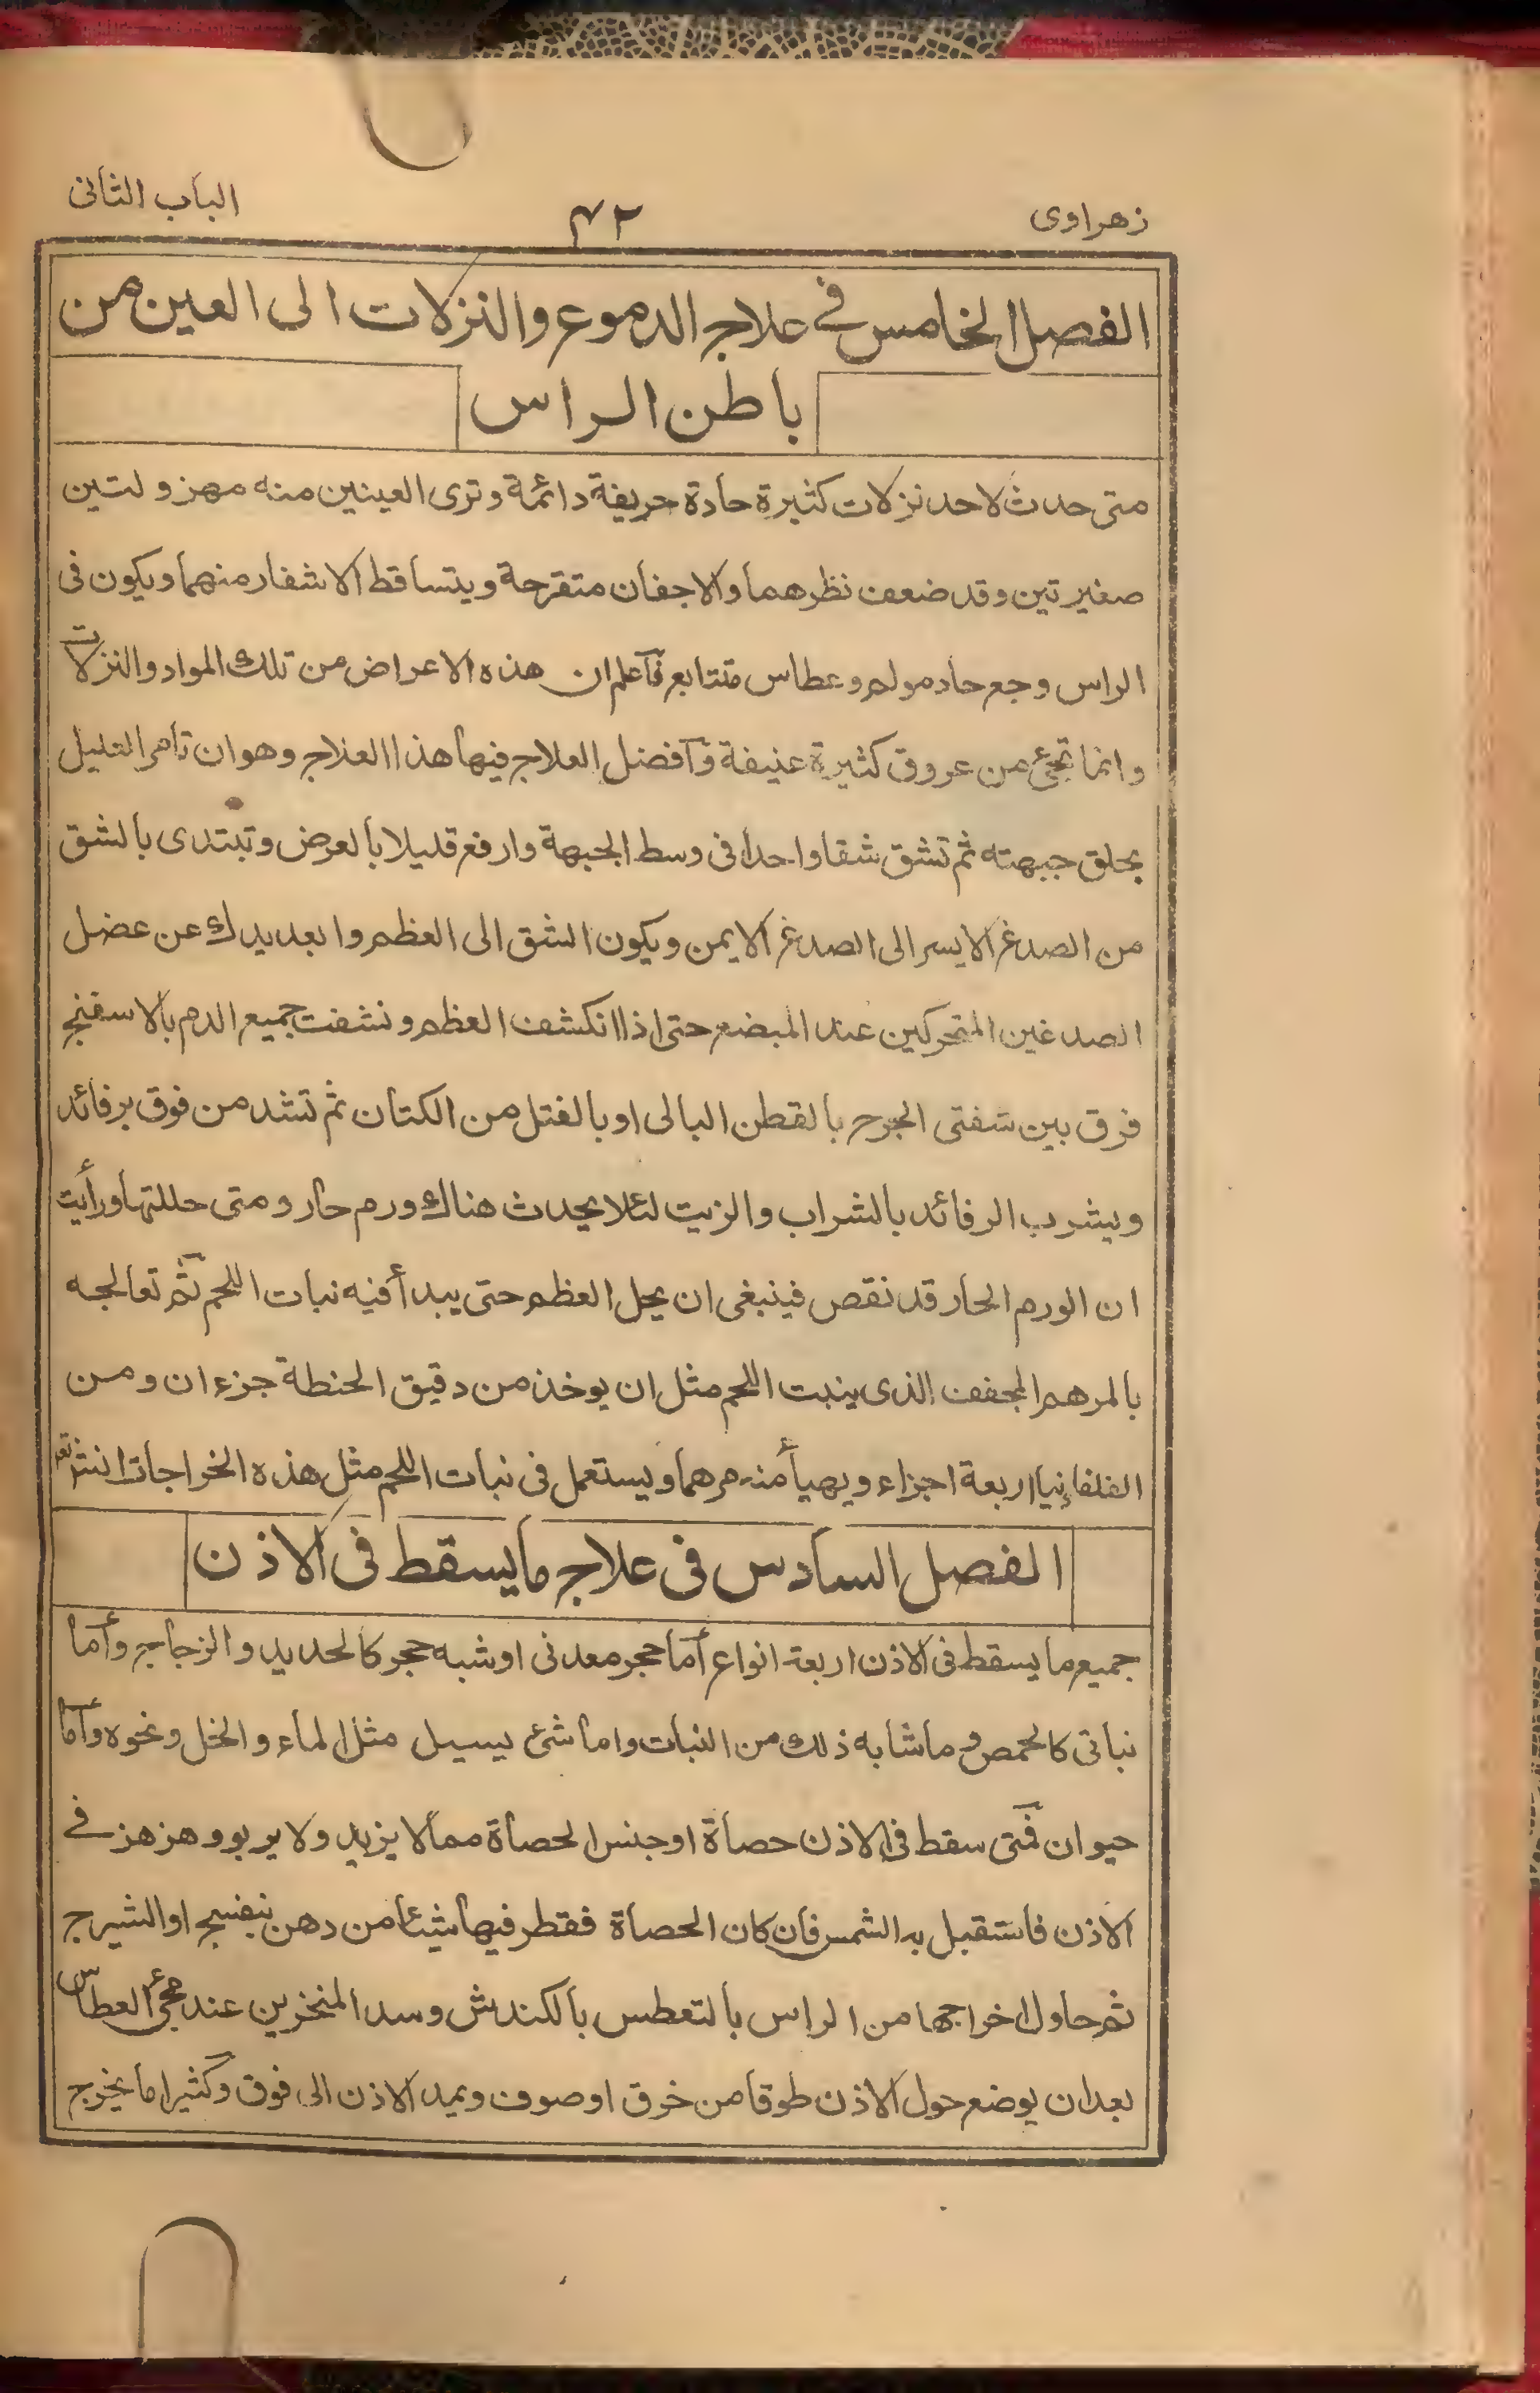 زهراوى
۴۲
الباب الثانى
الفصل الخامس فے علاج الدموع والنزلات الى العين من
باطن الراس
متى حدث لاحد نزلات كثيرة حادة حريفة دائمة وترى العينين منه مهزولتين
صغيرتين وقد ضعف نظرهما والاجفان متقرحة ويتساقط الاشفار منهما ويكون فى
الراس وجع حاد مولم وعطاس متتابع فاعلم ان هذه الاعراض من تلك المواد والنزلات
وانما تجئ من عروق كثيرة عنيفة وافضل العلاج فيها هذا العلاج وهو ان تامر العليل
بحلق جبهته ثم تشق شقا واحدا فى وسط الجبهة وارفع قليلا بالعرض وتبتدى بالشق
من الصدغ الايسر الى الصدغ الايمن ويكون الشق الى العظم وابعد يدك عن عضل
الصدغين المتحركين عند المبضع حتى اذا انكشف العظم ونشفت جميع الدم بالاسفنج
فرق بين شفتى الجرح بالقطن البالى او بالفتل من الكتان ثم تشد من فوق برفائد
ويشرب الرفائد بالشراب والزيت لئلا يحدث هناك ورم حار ومتى حللتها ورأيت
ان الورم الحار قد نقص فينبغى ان يحل العظم حتى يبدأ فيه نبات اللحم ثم تعالجه
بالمرهم المجفف الذى ينبت اللحم مثل ان يوخذ من دقيق الحنطة جزءان ومن
الفلفانيا اربعة اجزاء ويهيأ منه مرهما ويستعمل فى نبات اللحم مثل هذه الخراجات
الفصل السادس فى علاج ما يسقط فى الاذن
جميع ما يسقط فى الاذن اربعة انواع أما حجر معدنى او شبه حجر كالحديد والزجاج وأما
نباتى كالحمص وما شابه ذلك من النبات واما شئ يسيل مثل الماء والخل ونحوه وأما
حيوان فمتى سقط فى الاذن حصاة او جنس الحصاة مما لا يزيد ولا يربو وهزهز فے
الاذن فاستقبل به الشمس فان كان الحصاة فقطر فيها شيئا من دهن بنفسج او الشيرج
ثم حاول اخراجها من الراس بالتعطس بالكندش وسد المنخرين عند مجئ العطاس
بعد ان يوضع حول الاذن طوقا من خرق او صوف ويمد الاذن الى فوق وكثيرا ما يخرج